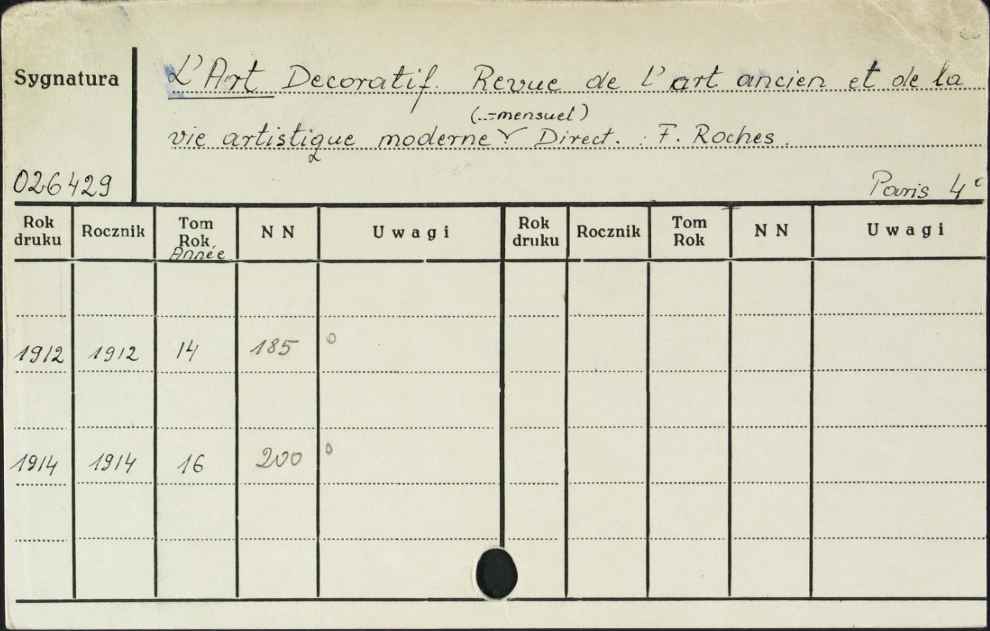 Sygnatura
L'Art Decoratif. Revue de l'art ancien et de la
(..-mensuel)
vie artistique moderne Direct. F. Roches.
026429
Paris 4°
Rok druku Rocznik Tom Rok Année NN Uwagi Rok druku Rocznik Tom Rok NN Uwagi
1912 1912 14 185 o
1914 1914 16 200 o